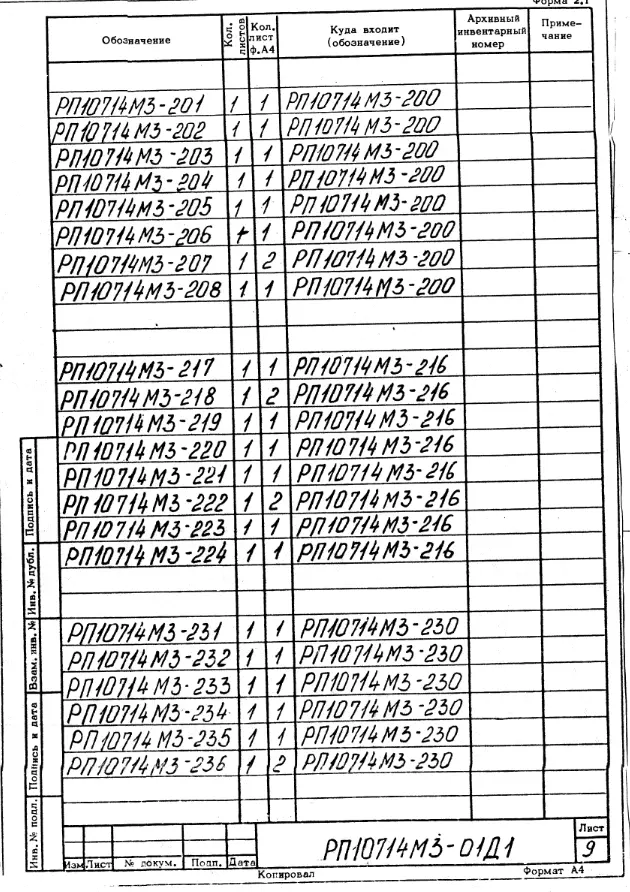 Форма 2.1
Обозначение Кол. листов Кол. лист ф.А4 Куда входит (обозначение) Архивный инвентарный номер Примечание
РП10714М3-201 1 1 РП10714М3-200
РП10714М3-202 1 1 РП10714М3-200
РП10714М3-203 1 1 РП10714М3-200
РП10714М3-204 1 1 РП10714М3-200
РП10714М3-205 1 1 РП10714М3-200
РП10714М3-206 1 1 РП10714М3-200
РП10714М3-207 1 2 РП10714М3-200
РП10714М3-208 1 1 РП10714М3-200
РП10714М3-217 1 1 РП10714М3-216
РП10714М3-218 1 2 РП10714М3-216
РП10714М3-219 1 1 РП10714М3-216
РП10714М3-220 1 1 РП10714М3-216
РП10714М3-221 1 1 РП10714М3-216
РП10714М3-222 1 2 РП10714М3-216
РП10714М3-223 1 1 РП10714М3-216
РП10714М3-224 1 1 РП10714М3-216
РП10714М3-231 1 1 РП10714М3-230
РП10714М3-232 1 1 РП10714М3-230
РП10714М3-233 1 1 РП10714М3-230
РП10714М3-234 1 1 РП10714М3-230
РП10714М3-235 1 1 РП10714М3-230
РП10714М3-236 1 2 РП10714М3-230
Подпись и дата
Инв. № дубл.
Взам. инв. №
Подпись и дата
Инв. № подл.
Изм Лист № докум. Подп. Дата
РП10714М3-01Д1
Лист
9
Копировал
Формат А4